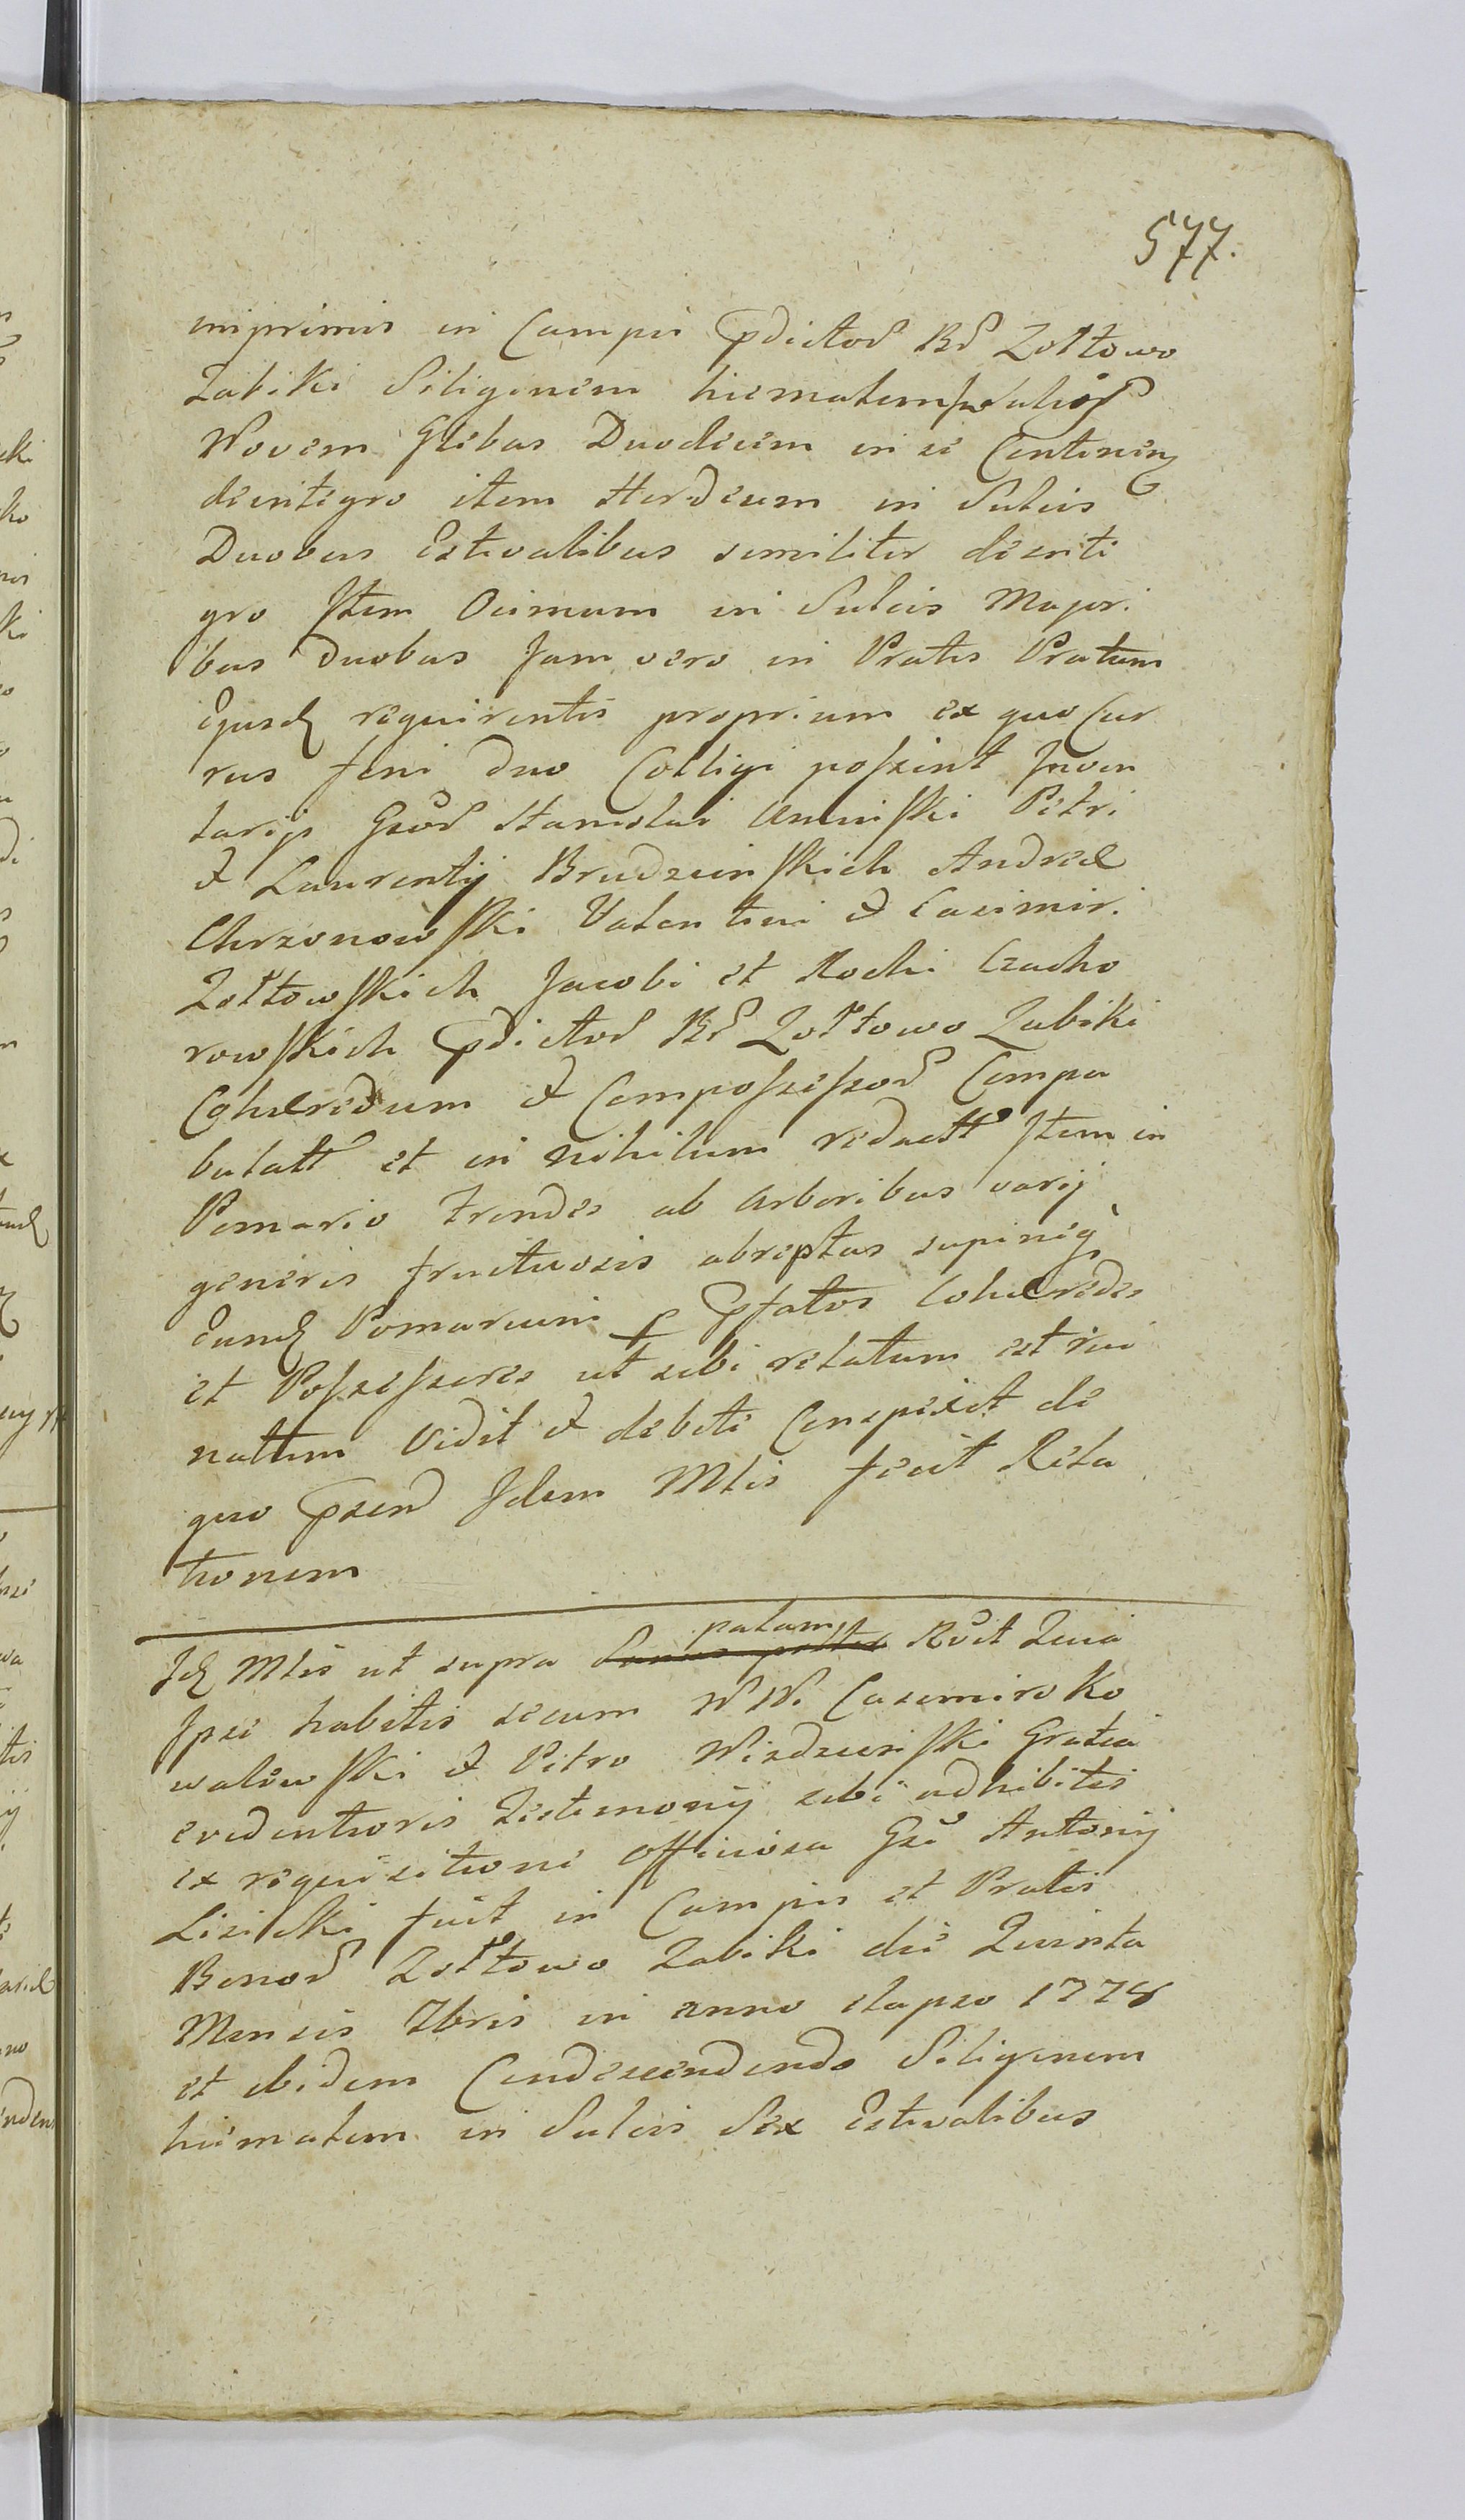 577.
imprimis in Campis Pdictor Br Zołtowo
Zabiki Siliginem hiemalem
Novem Glebas Duodecim in se Continen
deintegro item Hordeum in Sulcis
Duobus Estivalibus similiter deinte
gro Item Ocimum in Sulcis Majori
bus Duobus Jam vero in Pratis Pratum
Ejusd requirentis proprium ex quo Cur
rus feni duo Colligi possint Inven
tarijs Gsor Stanislai Petri
et Laurentij Brudzinskich Andreæ
Chrzonowski Valentini et Casimiri
Zołtowskich Jacobi et Rochi Czacho
rowskich Pdictor Br Zołtowo Zabiki
Cohæredum et Compossessor Compa
bulatt et in nihilum redactt Item in
Pomario Frondes ab Arboribus varij
generis fructuosis abreptas supiniq
Eund Pomarium p Pfatos Cohæredes
et Possessores ut sibi relatum est rui
nattum Vidit et debite Conspexit de
quo Psens Idem Mlis fecit Rela
tionem
Id Mlis ut supra palam Rvit Quia
Ipse habitis secum NN. Casimiro Ko
walewski et Petro Wisdzinski Gratia
evidentioris Testimonij sibi adhibitis
ex requisitione officiosa Gsi Antonij
Lisicki fuit in Campis et Pratis
Bonor Zołtowo Zabiki die Quinta
Mensis 7bris in anno elapso 1778
et ibidem Condescendendo Siliginem
hiemalem in Sulcis Sex Estivalibus